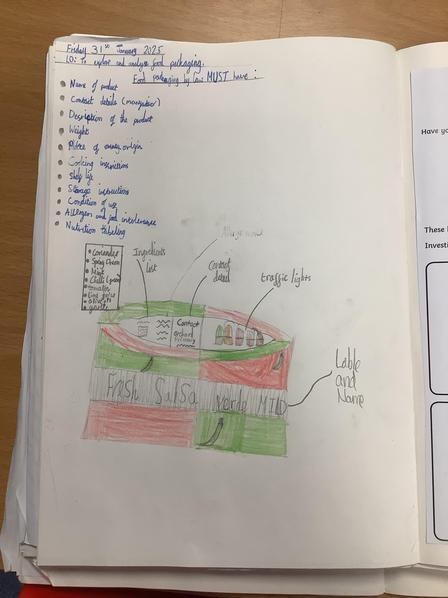 Friday 31st January 2025
LO: To explore and analyse food packaging.
Food packaging by law MUST have :
Name of product
Contact details
Description of the product
Weight
Place of origin
Cooking instructions
Shelf life
Storage instructions
Condition of use
Allergen and food intolerance
Nutrition labeling
Coriander
Spring Onion
Mint
Chilli
tomatoes
Ingredients
list
Contact
detail
traffic lights
Contact
Fresh Salsa verde MILD
Lable
and
Name
Have yo
These
Investi